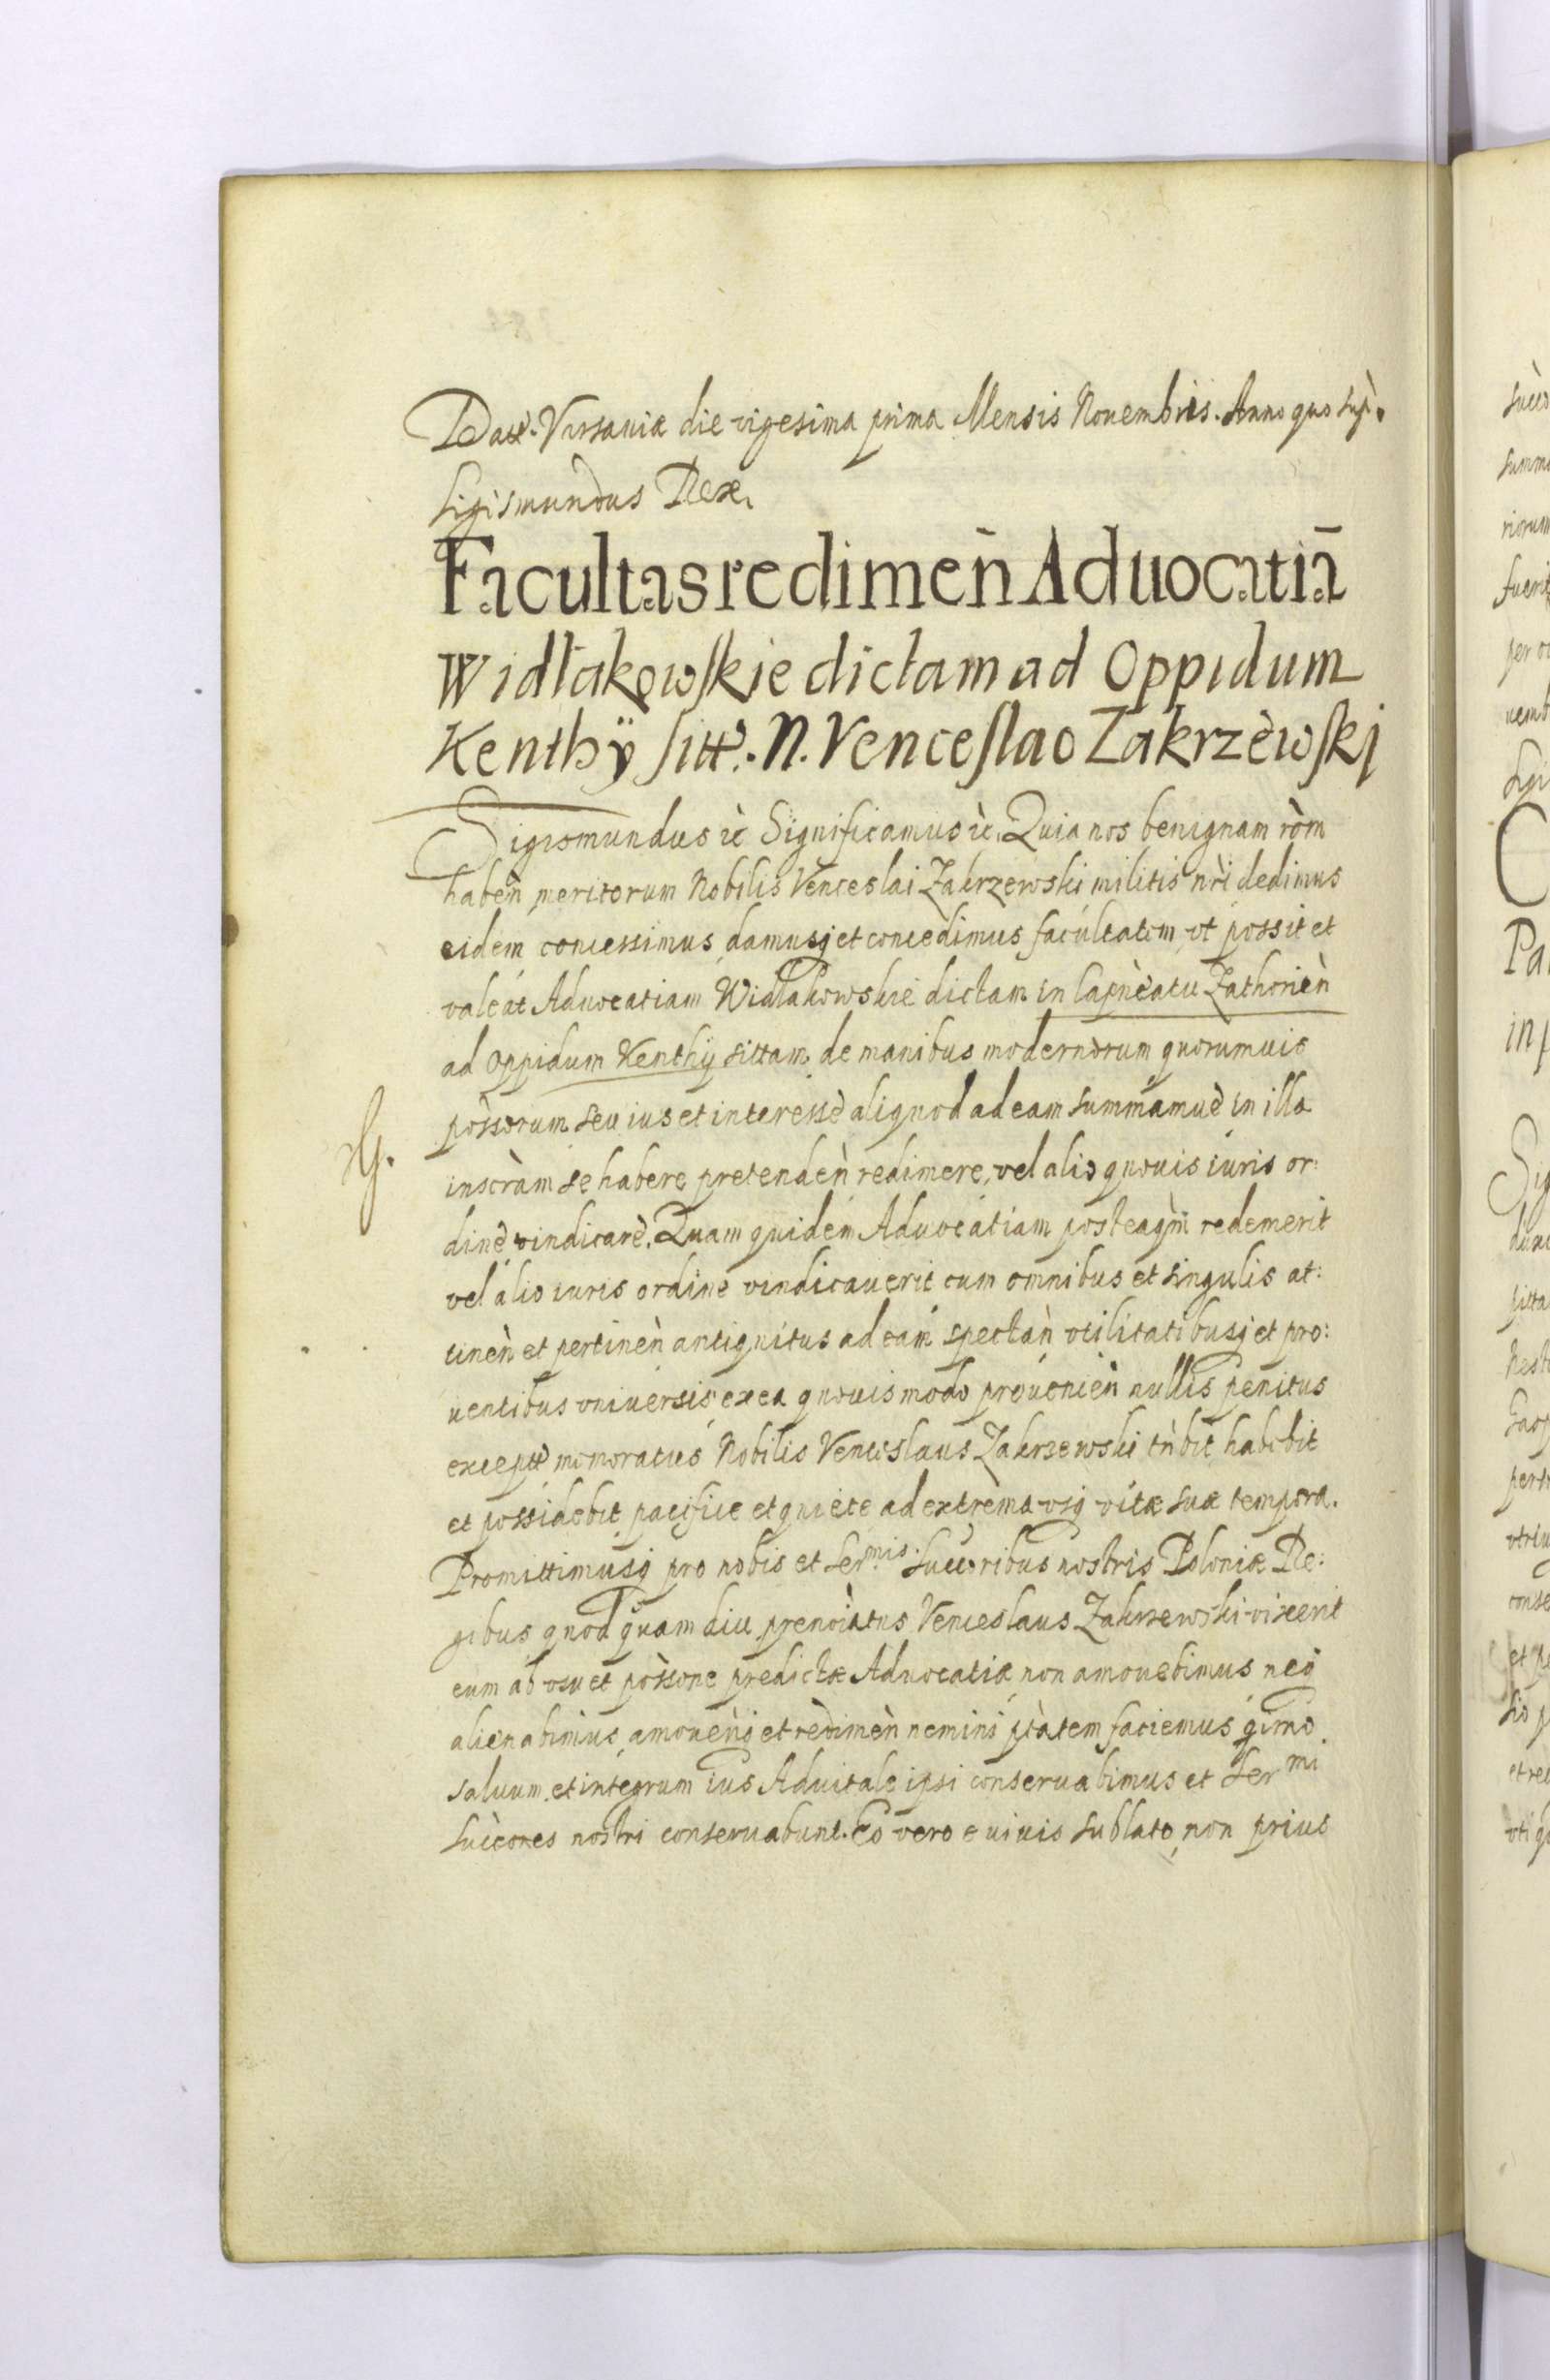 Datt. Varsaviæ die vigesima prima Mensis Novembris. Anno quo supr.
Sigismundus Rex.
Facultas redimeñ Aduocatiā
Widłakowskie dictam ad Oppidum
Kenthÿ sitt. N. Venceslao Zakrzewski
Sigismundus ꝛc Significamus ꝛc. Quia nos benignam ròm
habeǹ meritorum Nobilis Venceslai Zakrzewski militis nr̀i dedimus
eidem concessimus, damusq et concedimus facultatem, vt possit et
valeat Aduocatiam Widlakowskie dictam in Capneatu Zathorieǹ
ad Oppidum Kenthÿ sittam de manibus modernorum quorumuis
possorum seu ius et interesse aliquod ad eam summamue in illa
inscràm se habere pretendeǹ redimere, vel alio quouis iuris or:
dine vindicare. Quam quidem Aduocatiam posteaqm̀ redemerit
vel alio iuris ordine vindicauerit cum omnibus et singulis at:
tineǹ et pertineǹ antiquitus ad eam spectaǹ vtilitatibusq et pro:
uentibus vniuersis ex ea quouis modo prouenieǹ nullis penitus
exceptt memoratus Nobilis Venceslaus Zakrzewski tǹbit habebit
et possidebit pacifice et quiete ad extrema vsq vitæ suæ tempora.
Promittimusq pro nobis et Ser.mis Succoribus nostris Poloniæ Re:
gibus quod quam diu prenoiàtus Venceslaus Zakrzewski vixerit
eum ab vsu et possone predictæ Aduocatiæ non amouebimus neq
alienabimus, amoueǹq et redimeǹ nemini ptàtem faciemus, qimo
saluum et integrum ius Aduitale ipsi conseruabimus et Sermi
succores nostri conseruabunt. Eo vero e viuis sublato, non prius